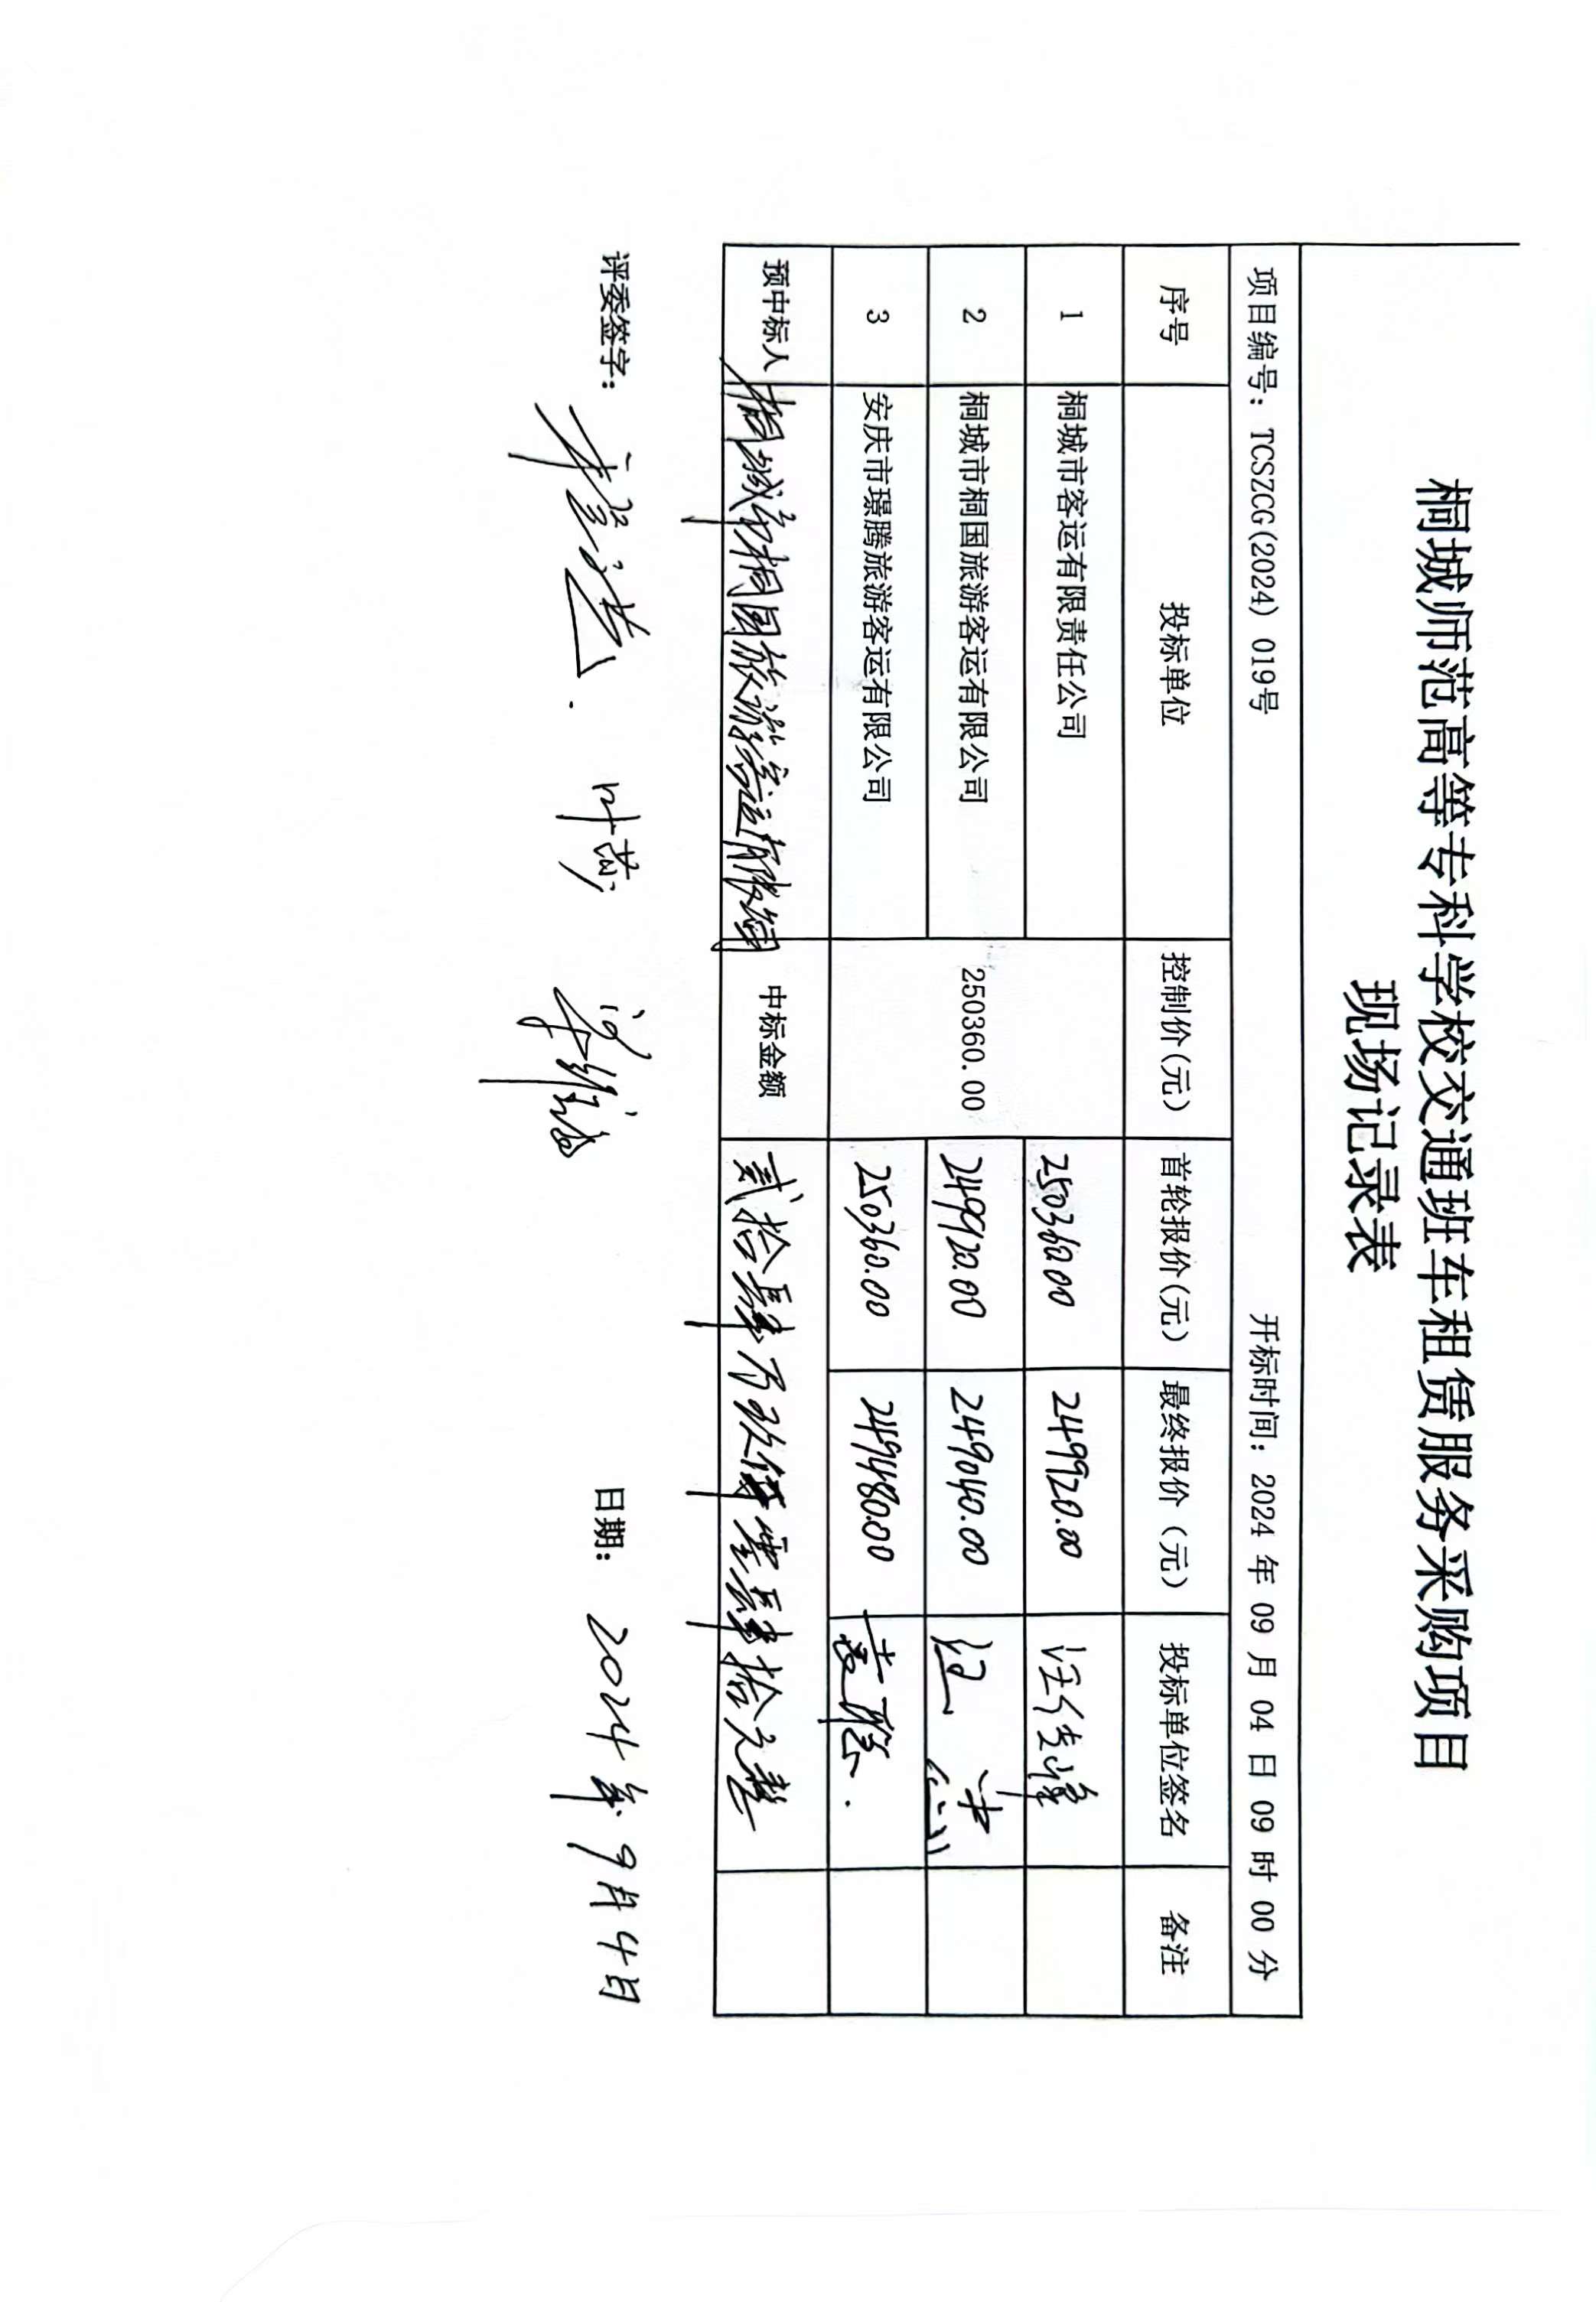 桐城师范高等专科学校交通班车租赁服务采购项目
现场记录表
项目编号：TCSZCG(2024) 019号 开标时间：2024 年 09 月 04 日 09 时 00 分
序号 投标单位 控制价(元) 首轮报价(元) 最终报价（元） 投标单位签名 备注
1 桐城市客运有限责任公司 250360.00 250360.00 249920.00
2 桐城市桐国旅游客运有限公司 249920.00 249040.00
3 安庆市璟腾旅游客运有限公司 250360.00 249480.00
预中标人 桐城市桐国旅游客运有限公司 中标金额 贰拾肆万玖仟零肆拾元整
评委签字： 日期：2024年9月4日